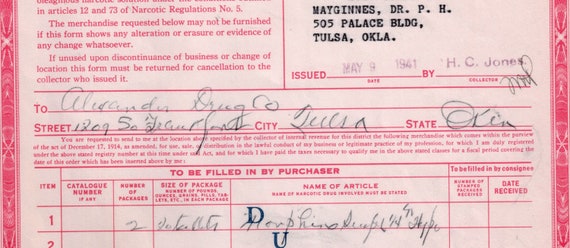 oleaginous narcotic solution under the exemption contained
in articles 12 and 73 of Narcotic Regulations No. 5.
The merchandise requested below may not be furnished
if this form shows any alteration or erasure or evidence of
any change whatsoever.
If unused upon discontinuance of business or change of
location this form must be returned for cancellation to the
collector who issued it.
MAYGINNES, DR. P. H.
505 PALACE BLDG,
TULSA, OKLA.
ISSUED MAY 9 1941 BY H. C. Jones
DATE COLLECTOR
TO Alexander Drug Co
STREET 1209 So Frankfort CITY Tulsa STATE Okla
You are requested to send to me at the location above specified by the collector of internal revenue for this district the following merchandise which comes within the purview
of the act of December 17, 1914, as amended, for sale, or distribution in the lawful conduct of my business or legitimate practice of my profession, for which I am duly registered
under the above stated registry number at this time under said Act, and for which I have paid the taxes necessary to qualify me in the above stated classes for a fiscal period covering the
date of this order which has been inserted above by me:
TO BE FILLED IN BY PURCHASER
To be filled in by consignee
ITEM
CATALOGUE NUMBER IF ANY
NUMBER OF PACKAGES
SIZE OF PACKAGE
NUMBER OF POUNDS, OUNCES, GRAINS, PILLS, TABLETS, ETC., IN EACH PACKAGE
NAME OF ARTICLE
NAME OF NARCOTIC DRUG INVOLVED MUST BE STATED
NUMBER OF STAMPED PACKAGES RECEIVED
DATE RECEIVED
1 2 Morphine Sulph Hypo
D
U
2